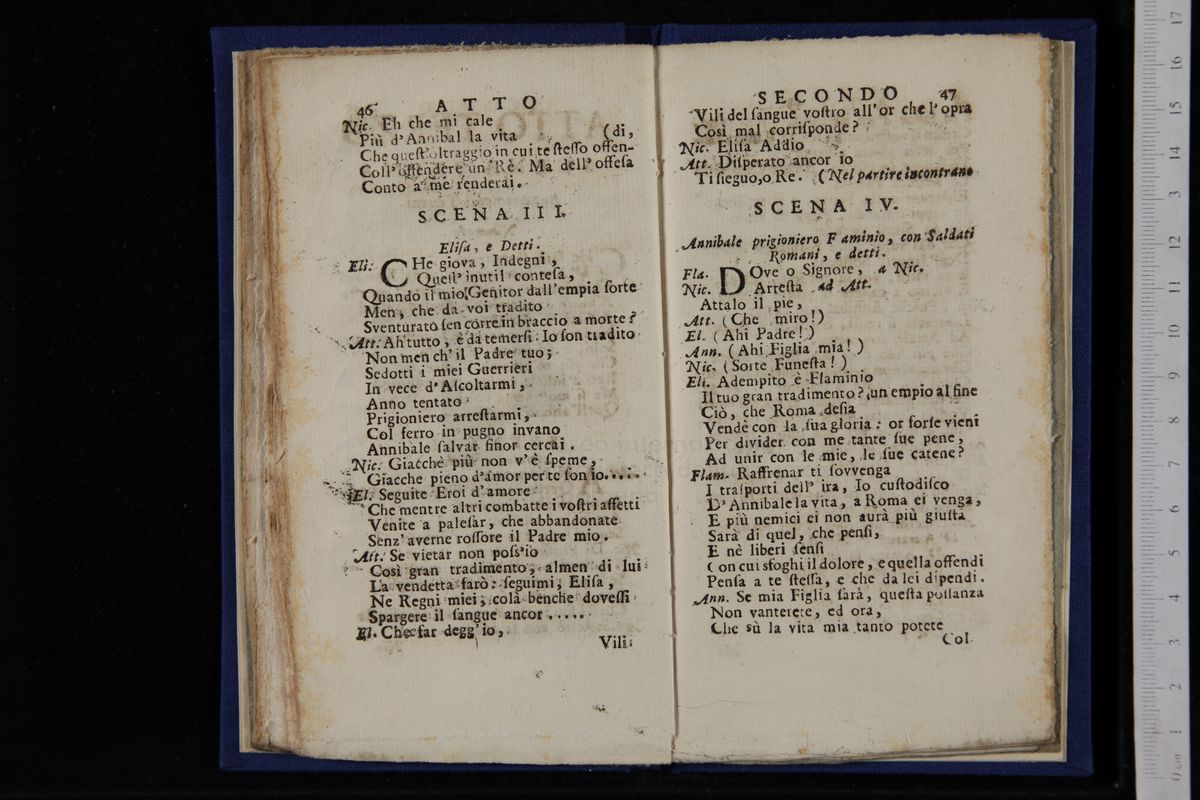 46 ATTO
Nic. Eh che mi cale
Più d'Annibal la vita (di,
Che quest'oltraggio in cui te stesso offen-
Coll'offendere un Rè. Ma dell'offesa
Conto a me renderai.
SCENA III.
Elisa, e Detti.
Eli. CHe giova, Indegni,
Quest'inutil contesa,
Quando il mio Genitor dall'empia sorte
Men, che da voi tradito
Sventurato sen corre in braccio a morte?
Att. Ah tutto, è da temersi: Io son tradito
Non men ch'il Padre tuo;
Sedotti i miei Guerrieri
In vece d'Ascoltarmi,
Anno tentato
Prigioniero arrestarmi,
Col ferro in pugno invano
Annibale salvar finor cercai.
Nic. Giacchè più non v'è speme,
Giacche pieno d'amor per te son io......
El. Seguite Eroi d'amore
Che mentre altri combatte i vostri affetti
Venite a palesar, che abbandonate
Senz'averne rossore il Padre mio.
Att. Se vietar non poss'io
Così gran tradimento, almen di lui
La vendetta farò: seguimi, Elisa,
Ne Regni miei; colà benche dovessi
Spargere il sangue ancor.....
El. Che far degg'io,
Vili
SECONDO 47
Vili del sangue vostro all'or che l'opra
Così mal corrisponde?
Nic. Elisa Addio
Att. Disperato ancor io
Ti sieguo, o Re. (Nel partire incontrano
SCENA IV.
Annibale prigioniero F aminio, con Saldati
Romani, e detti.
Fla. DOve o Signore, a Nic.
Nic. Arresta ad Att.
Attalo il pie,
Att. (Che miro!)
El. (Ahi Padre!)
Ann. (Ahi Figlia mia!)
Nic. (Sorte Funesta!)
Eli. Adempito è Flaminio
Il tuo gran tradimento? un empio al fine
Ciò, che Roma desia
Vendè con la sua gloria: or forse vieni
Per divider con me tante sue pene,
Ad unir con le mie, le sue catene?
Flam. Raffrenar ti sovvenga
I trasporti dell'ira, Io custodisco
D'Annibale la vita, a Roma ei venga,
E più nemici ei non aurà più giusta
Sarà di quel, che pensi,
E nè liberi sensi
Con cui sfoghi il dolore, e quella offendi
Pensa a te stessa, e che da lei dipendi.
Ann. Se mia Figlia sarà, questa possanza
Non vanterete, ed ora,
Che sù la vita mia tanto potete
Col